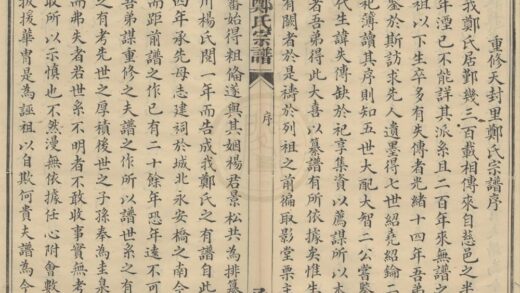 重修天封里鄭氏宗譜序
我鄭氏居鄞幾三百載相傳來自慈邑之半
年湮已不能詳其派系且二百年來無譜之
祖以下生卒多有失傳者光緒十四年吾弟
鋆於斯訪求先人遺墨得七世紹堯紹綸二
祀簿讀其序則知五世大配大智二公嘗
代生諱失傳缺於祀享集資以薦謀所以本
者吾弟得此大喜以纂譜有所依據矣惟生
有闕者於是禱於列祖之前徧取影堂栗主
鄭氏宗譜
序
番始得粗備遂與其姻楊君景松共為排纂
川楊氏閱一年而告成我鄭氏之有譜自此
四年承先母志建祠於城北永安橋之南今
而距前譜之作已有二十餘年恐年遠不可
吾弟謀重修之夫譜之作所以譜世系之有
之有考先世之厚積後世之子孫奉為圭臬
而弗失者若世系不明者不敢收事實無考
取所以示慎也不然漫無依據任心附會數
援華胄是為誣祖以自欺何貴夫譜為今